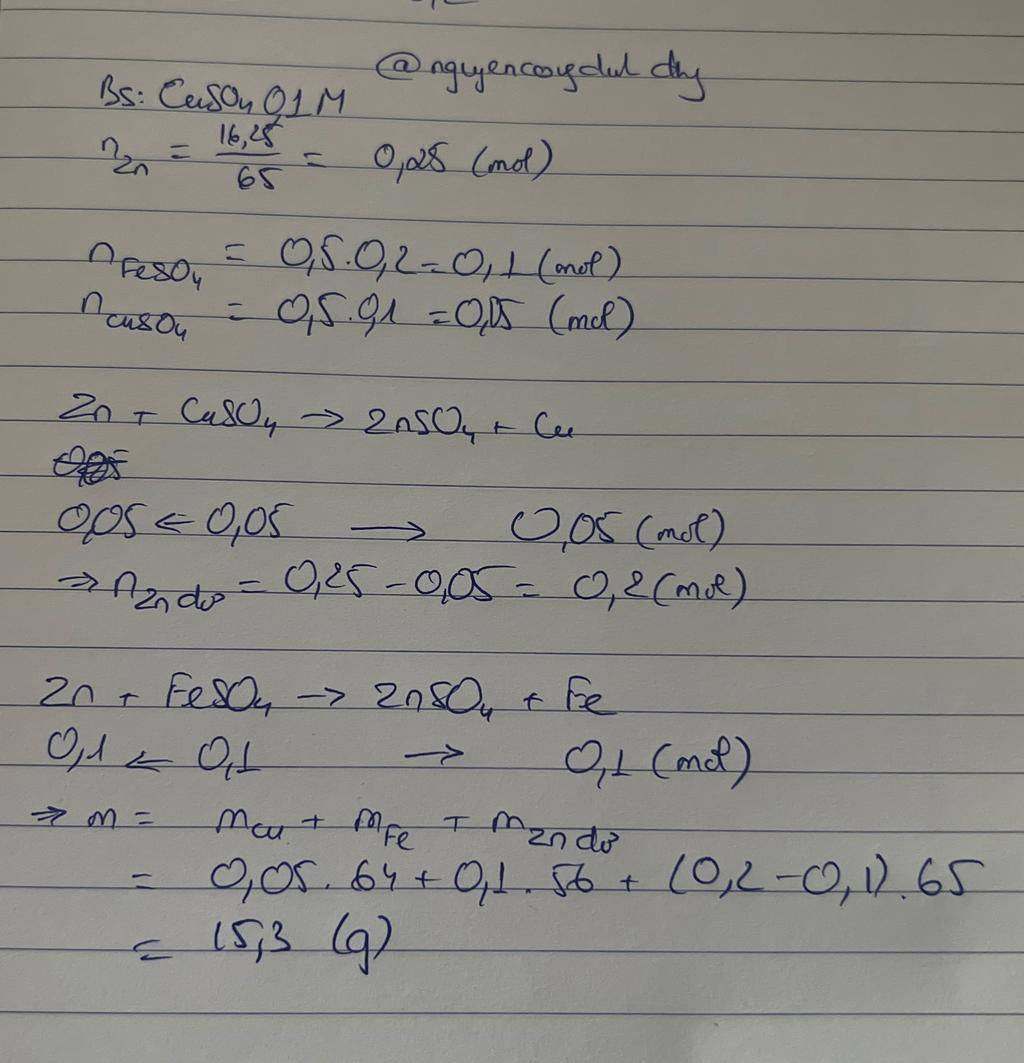 Bs: CuSO4 0,1M
n Zn = 16,25 / 65 = 0,25 (mol)
n FeSO4 = 0,5.0,2 = 0,1 (mol)
n CuSO4 = 0,5.0,1 = 0,05 (mol)
Zn + CuSO4 → ZnSO4 + Cu
0,05 ← 0,05 → 0,05 (mol)
⇒ n Zn dư = 0,25 - 0,05 = 0,2 (mol)
Zn + FeSO4 → ZnSO4 + Fe
0,1 ← 0,1 → 0,1 (mol)
⇒ m = mCu + mFe + mZn dư
= 0,05.64 + 0,1.56 + (0,2-0,1).65
= 15,3 (g)